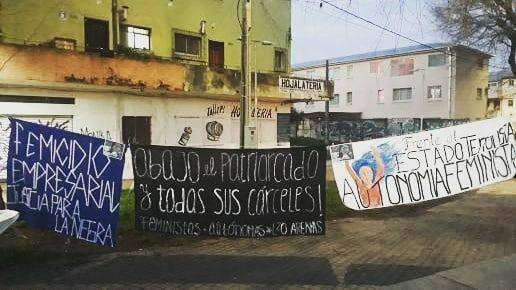 HOJALATERIA
Taller
FEMICIDIO
EMPRESARIAL
JUSTICIA PARA
LA NEGRA
ABAJO el PATRIARCADO
y TODAS SUS CÁRCELES!
FEMINISTAS - AUTÓNOMAS
FRENTE al
ESTADO
AUTONOMIA FEMINISTA